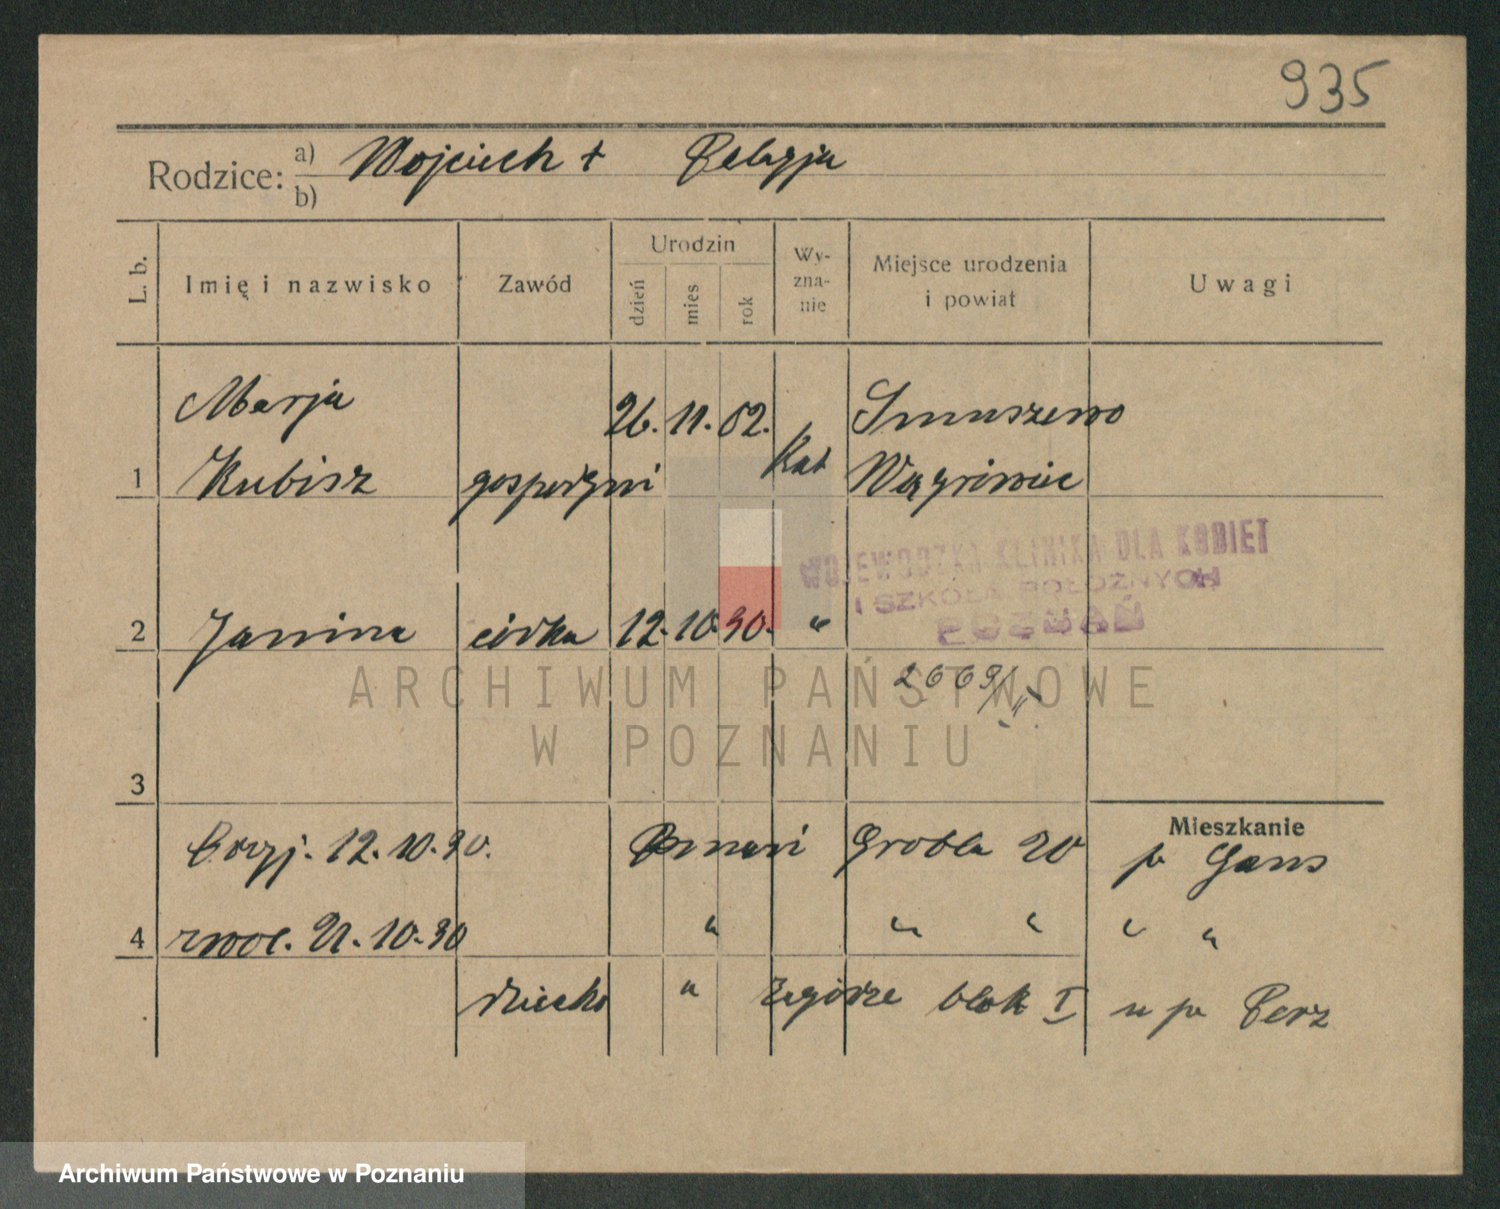 935
Rodzice: a) Wojciech + Pelagja
b)
L. b. Imię i nazwisko Zawód Urodzin dzień mies rok Wy-zna-nie Miejsce urodzenia i powiat Uwagi
Marja 26. 11. 02. Smuszewo
1 Kubisz gospodyni Kat Wągrowiec
WOJEWÓDZKA KLINIKA DLA KOBIET
I SZKOŁA POŁOŻNYCH
POZNAŃ
2 Janina córka 12. 10. 30. "
2669/
ARCHIWUM PAŃSTWOWE
W POZNANIU
3
Mieszkanie
12. 10. 30. Poznań Grobla 20 p Gans
4 21. 10. 30 " " " " "
dziecko " Zagórze blok I u p
Archiwum Państwowe w Poznaniu